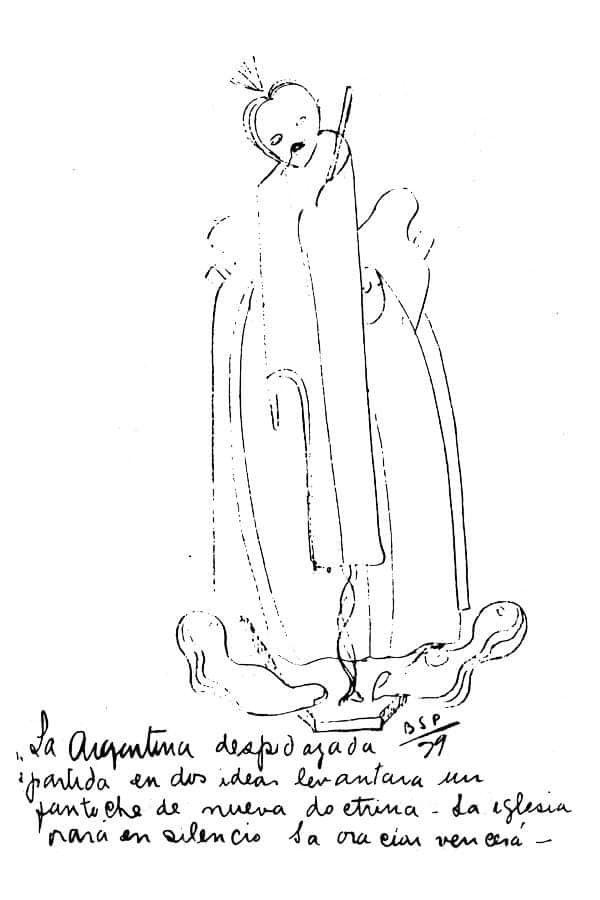 "La Argentina despedazada
partida en dos ideas levantara un
fantoche de nueva doctrina - La iglesia
orará en silencio La oracion vencerá -
BSP
39